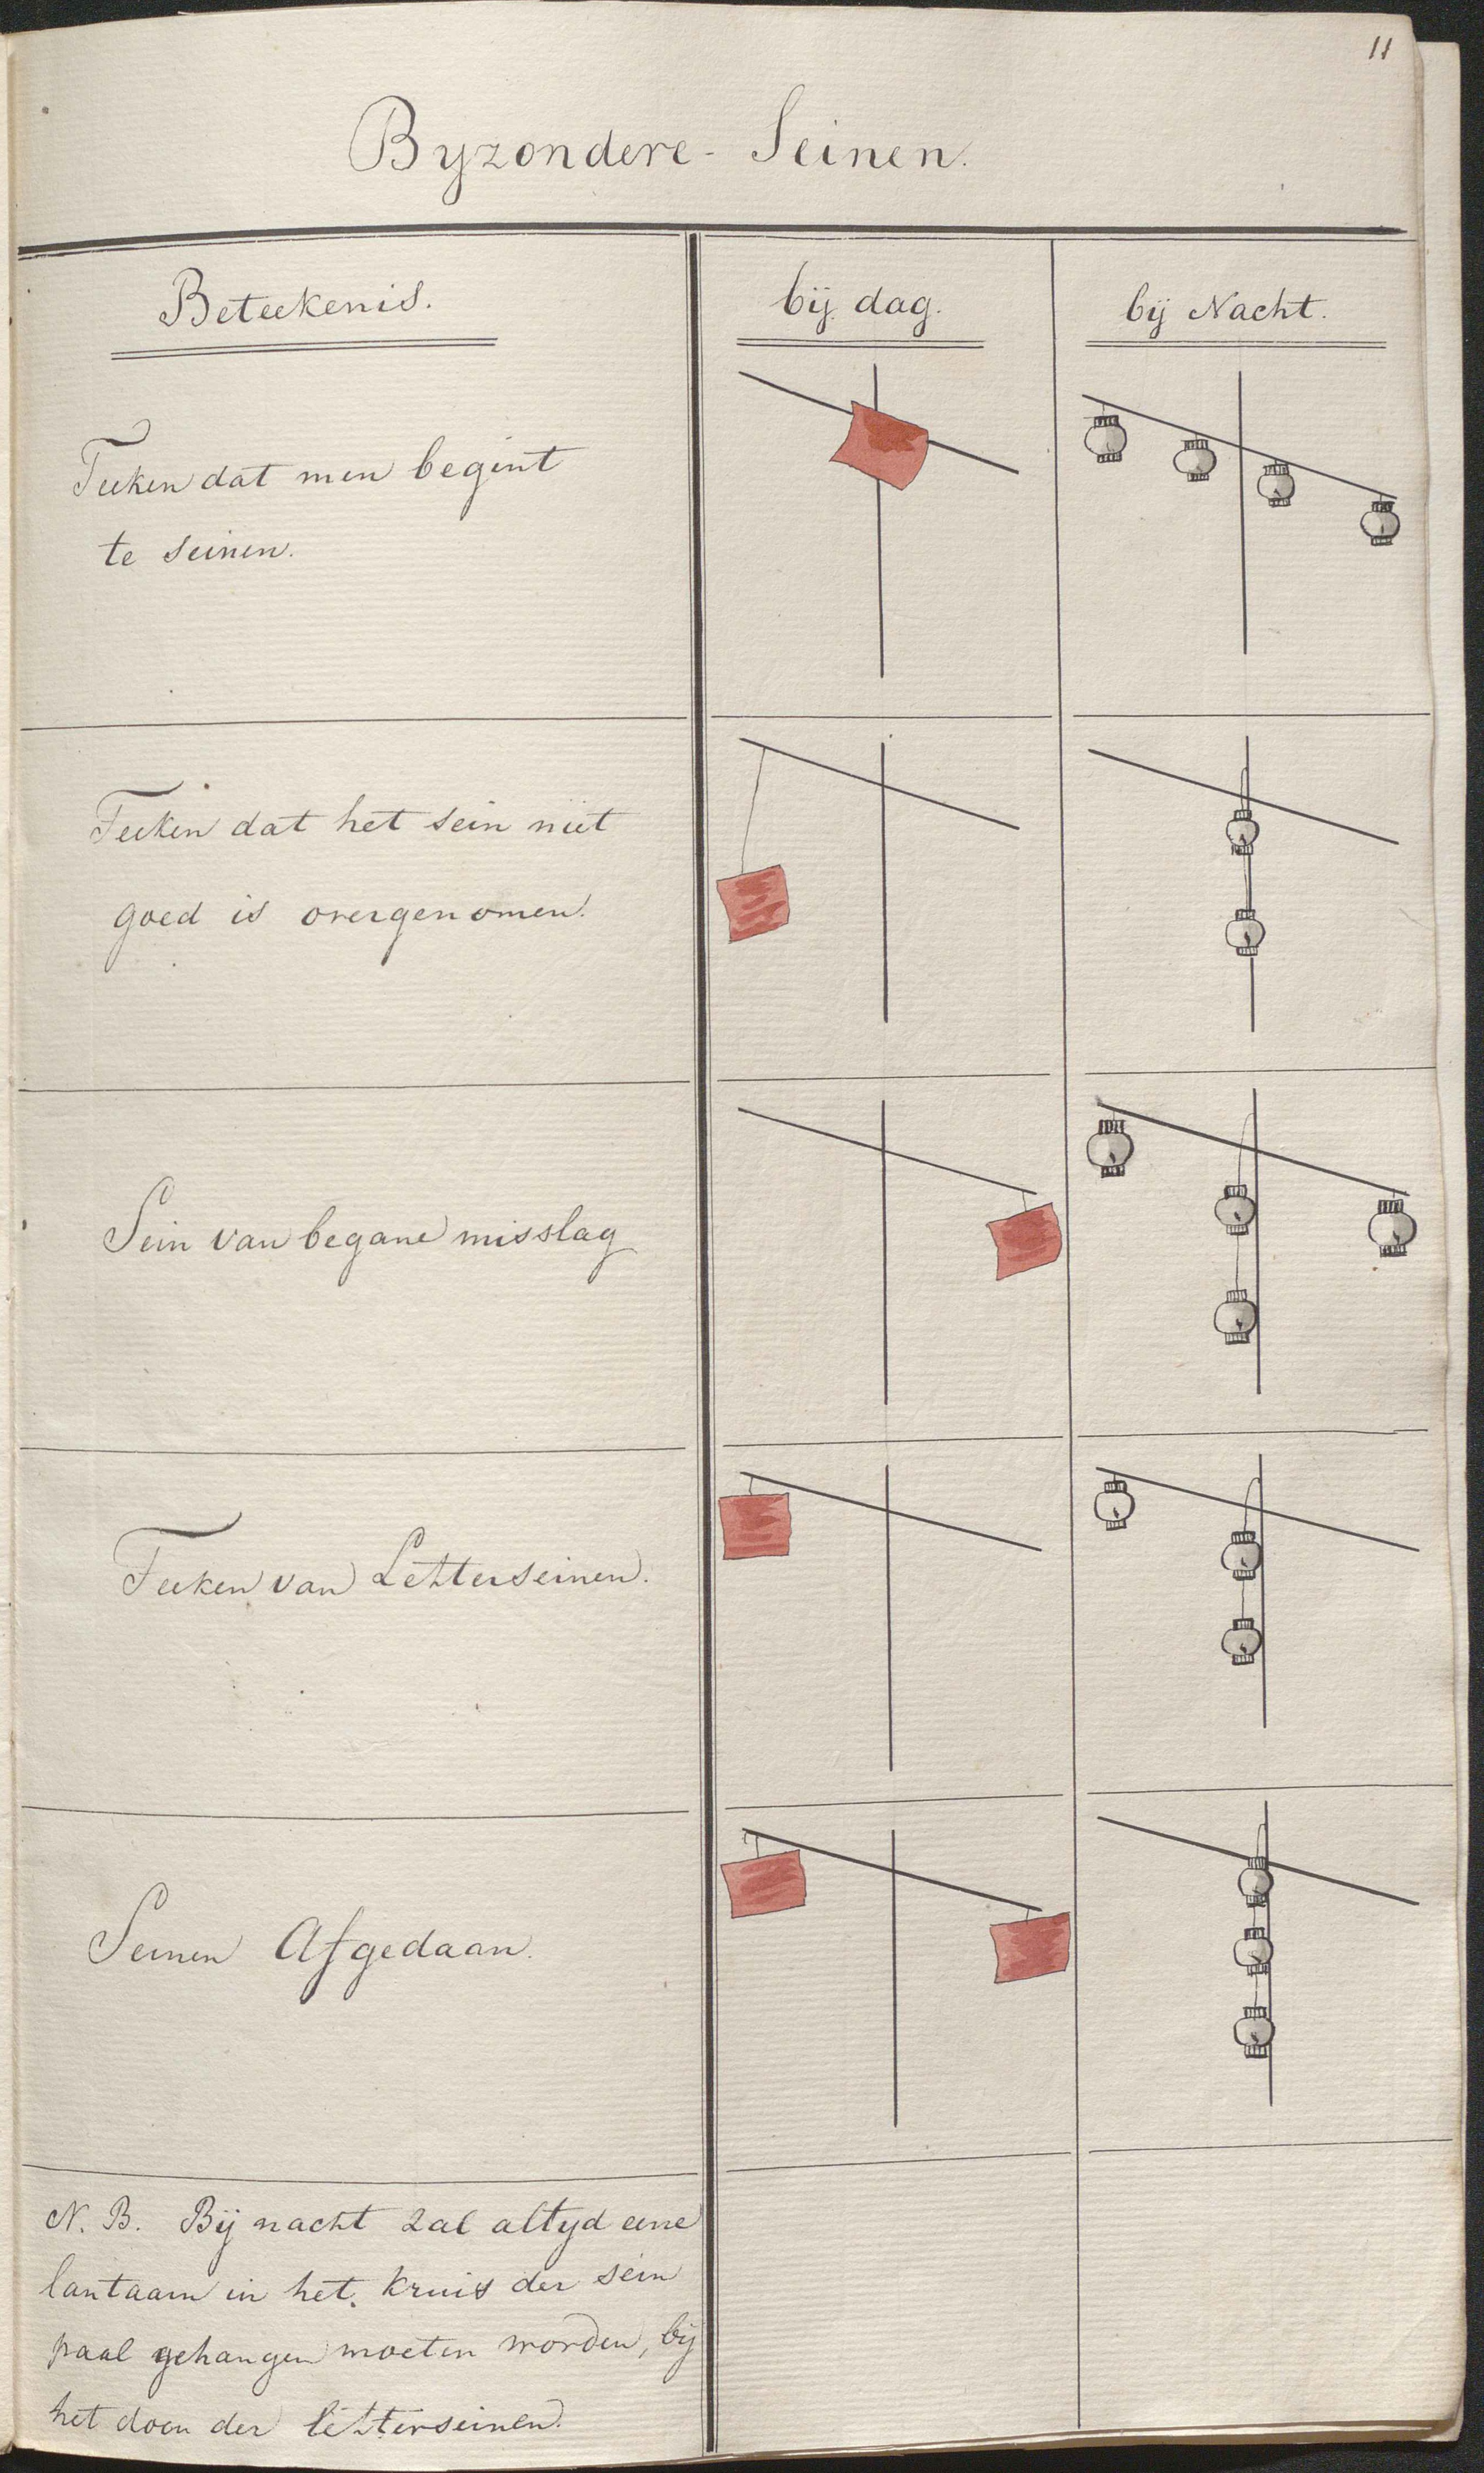 11
Byzondere - Seinen.
Beteekenis.
bij dag.
bij Nacht.
Teeken dat men begint
te seinen.
Teeken dat het sein niet
goed is overgenomen.
Sein van begane misslag
Teeken van Letterseinen.
Seinen Afgedaan.
N. B. Bij nacht zal altyd eene
lantaarn in het kruis der sein
paal gehangen moeten worden, bij
het doen der letterseinen.